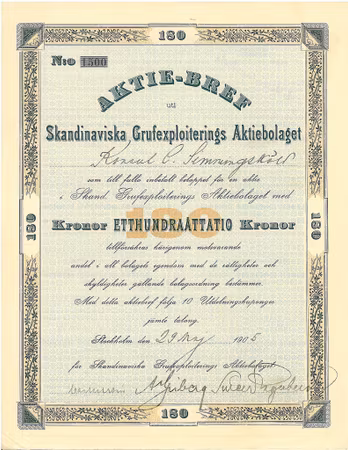 180
N:o 1500
AKTIE-BREF
uti
Skandinaviska Grufexploiterings Aktiebolaget
Konsul C.
som till fullo inbetalt beloppet för en aktie
i Skand. Grufexploiterings Aktiebolaget med
180
Kronor ETTHUNDRAATTATIO Kronor
tillförsäkras härigenom motsvarande
andel i all bolagets egendom med de rättigheter och
skyldigheter gällande bolagsordning bestämmer.
Med detta aktiebref följa 10 Utdelningskuponger
jämte talong.
Stockholm den 29 Maj 1905
för Skandinaviska Grufexploiterings Aktiebolaget
180
180
180